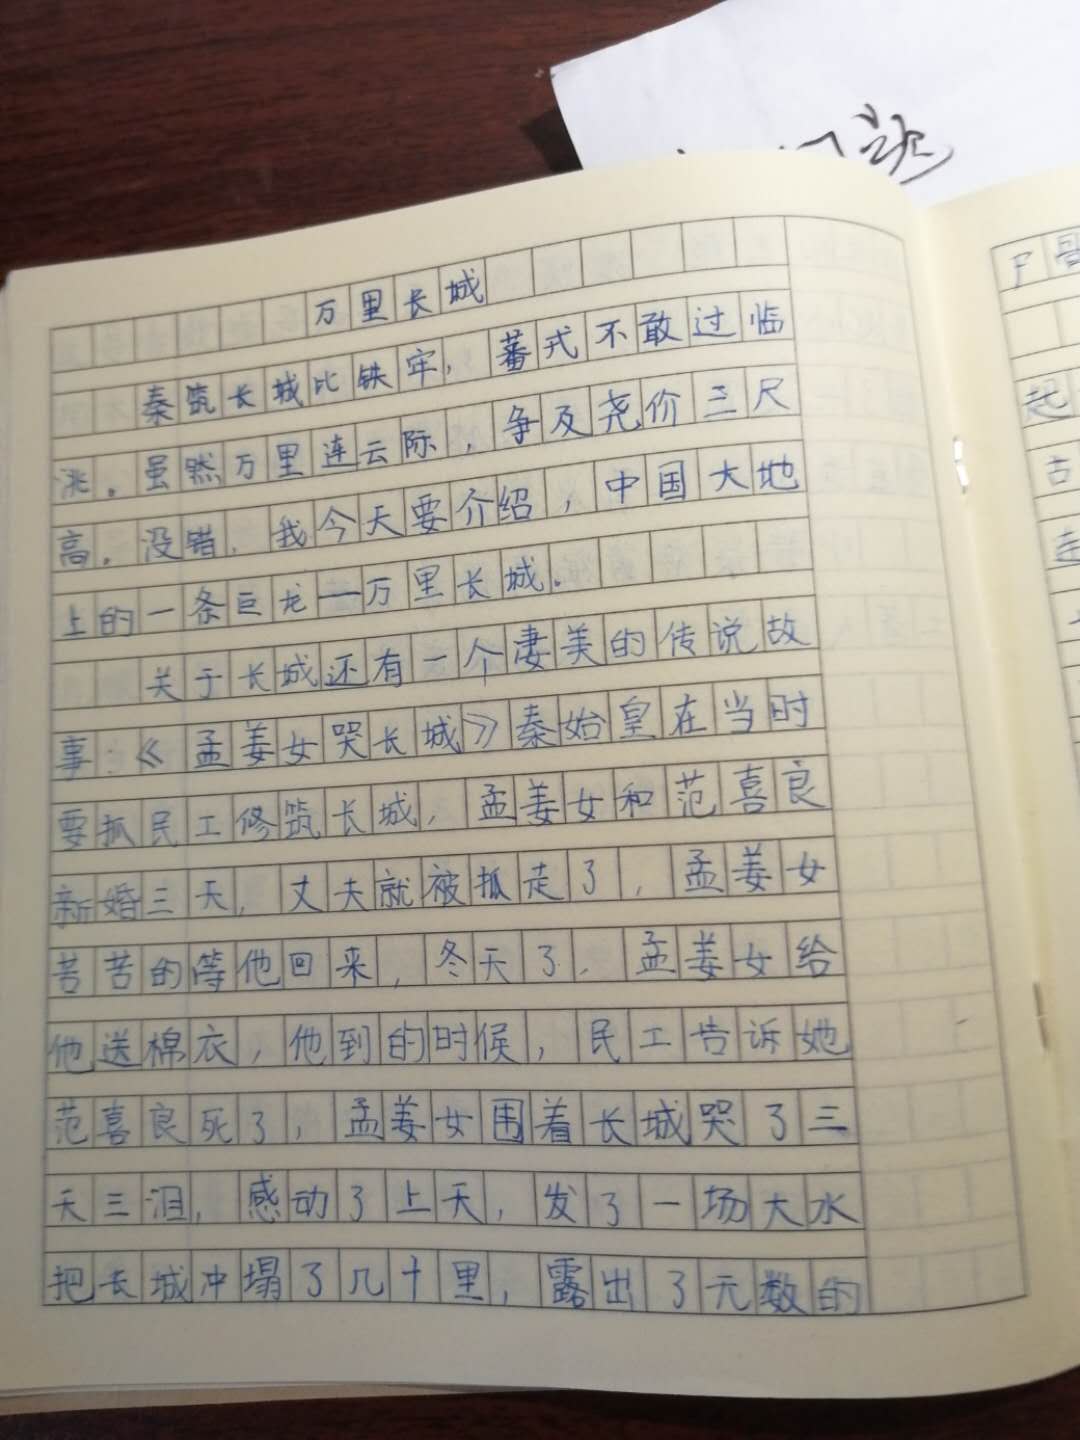 万里长城
秦筑长城比铁牢，蕃戎不敢过临
洮。虽然万里连云际，争及尧价三尺
高。没错，我今天要介绍，中国大地
上的一条巨龙—万里长城。
关于长城还有一个凄美的传说故
事：《孟姜女哭长城》秦始皇在当时
要抓民工修筑长城，孟姜女和范喜良
新婚三天，丈夫就被抓走了，孟姜女
苦苦的等他回来，冬天了，孟姜女给
他送棉衣，他到的时候，民工告诉她
范喜良死了，孟姜女围着长城哭了三
天三泪，感动了上天，发了一场大水
把长城冲塌了几十里，露出了无数的
尸
起
古